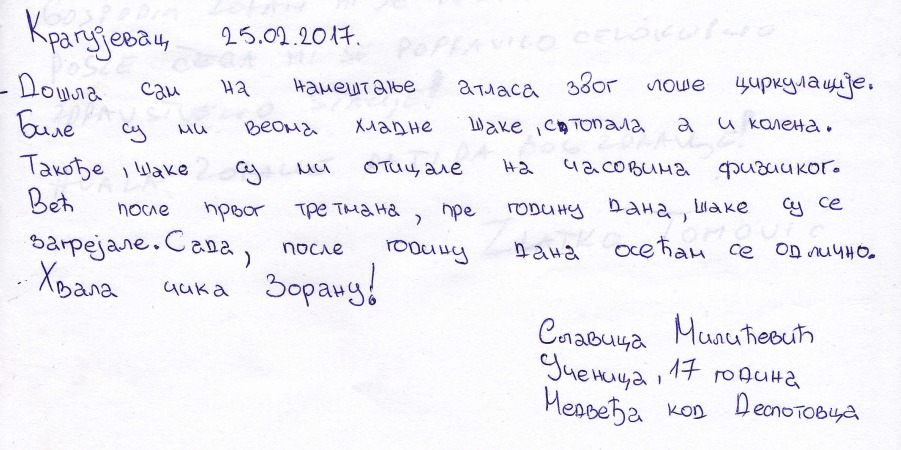 Крагујевац, 25.02.2017.
- Дошла сам на намештање атласа због лоше циркулације.
Биле су ми веома хладне шаке, стопала а и колена.
Такође, шаке су ми отицале на часовима физичког.
Већ после првог третмана, пре годину дана, шаке су се
загрејале. Сада, после годину дана осећам се одлично.
Хвала чика Зорану!
Славица Милићевић
Ученица, 17 година
Медвеђа код Деспотовца